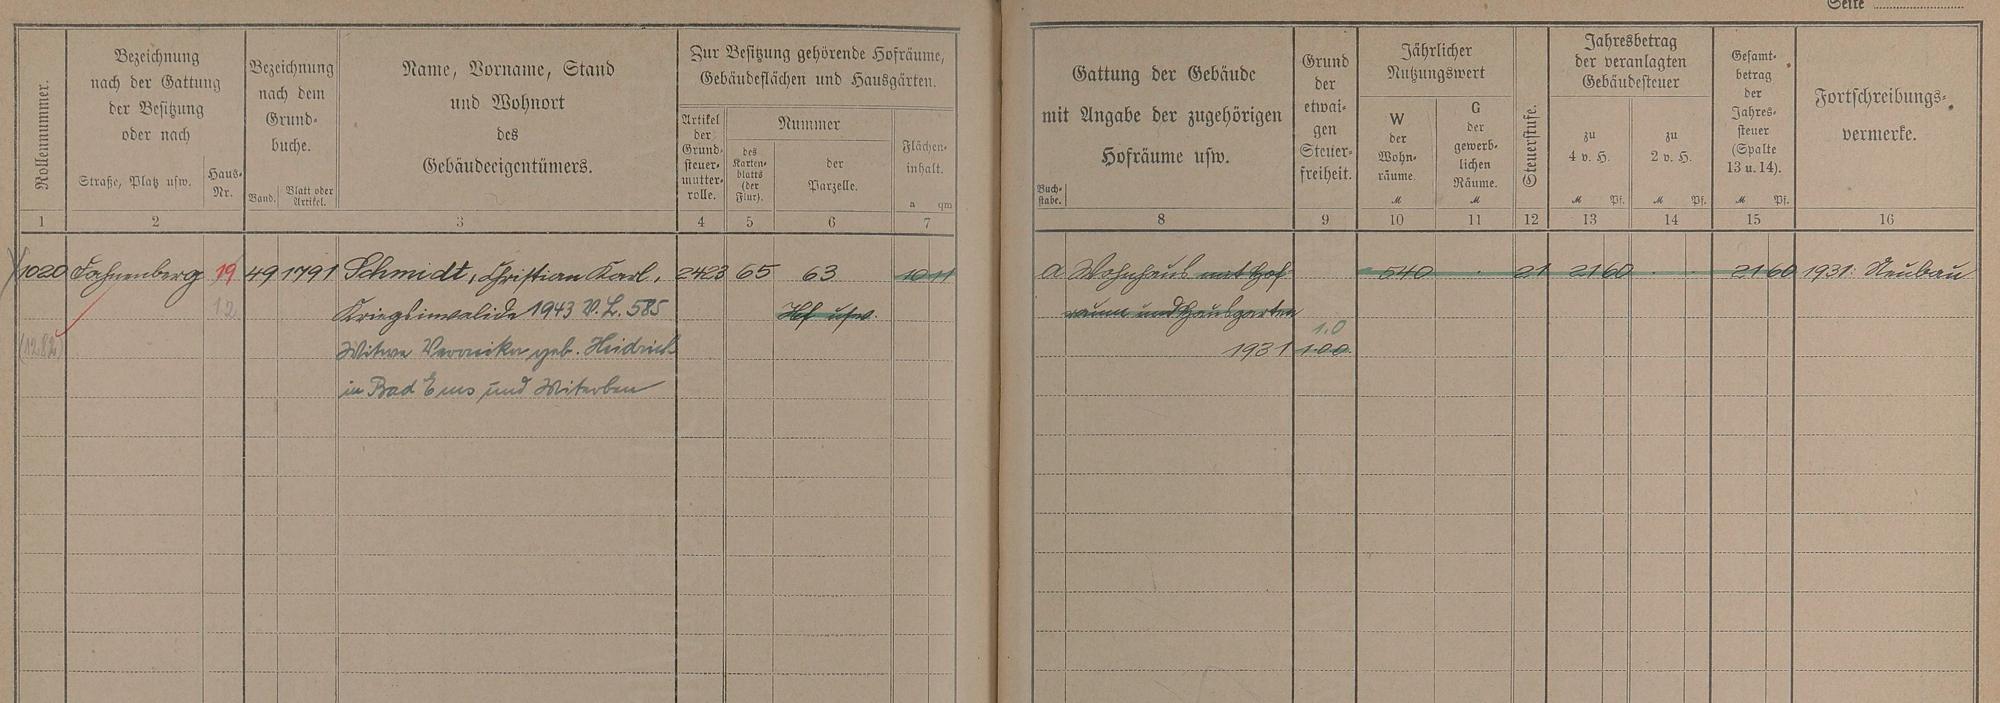 Seite
Rollennummer.
Bezeichnung
nach der Gattung
der Besitzung
oder nach
Straße, Platz usw.
Haus-
Nr.
Bezeichnung
nach dem
Grund-
buche.
Band.
Blatt oder
Artikel.
Name, Vorname, Stand
und Wohnort
des
Gebäudeeigentümers.
Zur Besitzung gehörende Hofräume,
Gebäudeflächen und Hausgärten.
Artikel
der
Grund-
steuer-
mutter-
rolle.
Nummer
des
Karten-
blatts
(der
Flur).
der
Parzelle.
Flächen-
inhalt.
a qm
Gattung der Gebäude
mit Angabe der zugehörigen
Hofräume usw.
Buch-
stabe.
Grund
der
etwai-
gen
Steuer-
freiheit.
Jährlicher
Nutzungswert
W
der
Wohn-
räume.
M
G
der
gewerb-
lichen
Räume.
M
Steuerstufe.
Jahresbetrag
der veranlagten
Gebäudesteuer
zu
4 v. H.
M Pf.
zu
2 v. H.
M Pf.
Gesamt-
betrag
der
Jahres-
steuer
(Spalte
13 u. 14).
M Pf.
Fortschreibungs-
vermerke.
1 2 3 4 5 6 7 8 9 10 11 12 13 14 15 16
1020 Fahnenberg 19 49 1791 Schmidt, Christian Karl, 2423 65 63 10 11 a Wohnhaus mit Hof- 540 · 21 21 60 · · 21 60 1931: Neubau
12 Kriegsinvalide 1943 V. L. 585 Hf usw. raum und Hausgarten
(1282) Witwe Veronika geb. Heidrich 1931 100. 1.0
in Bad Ems und Miterben